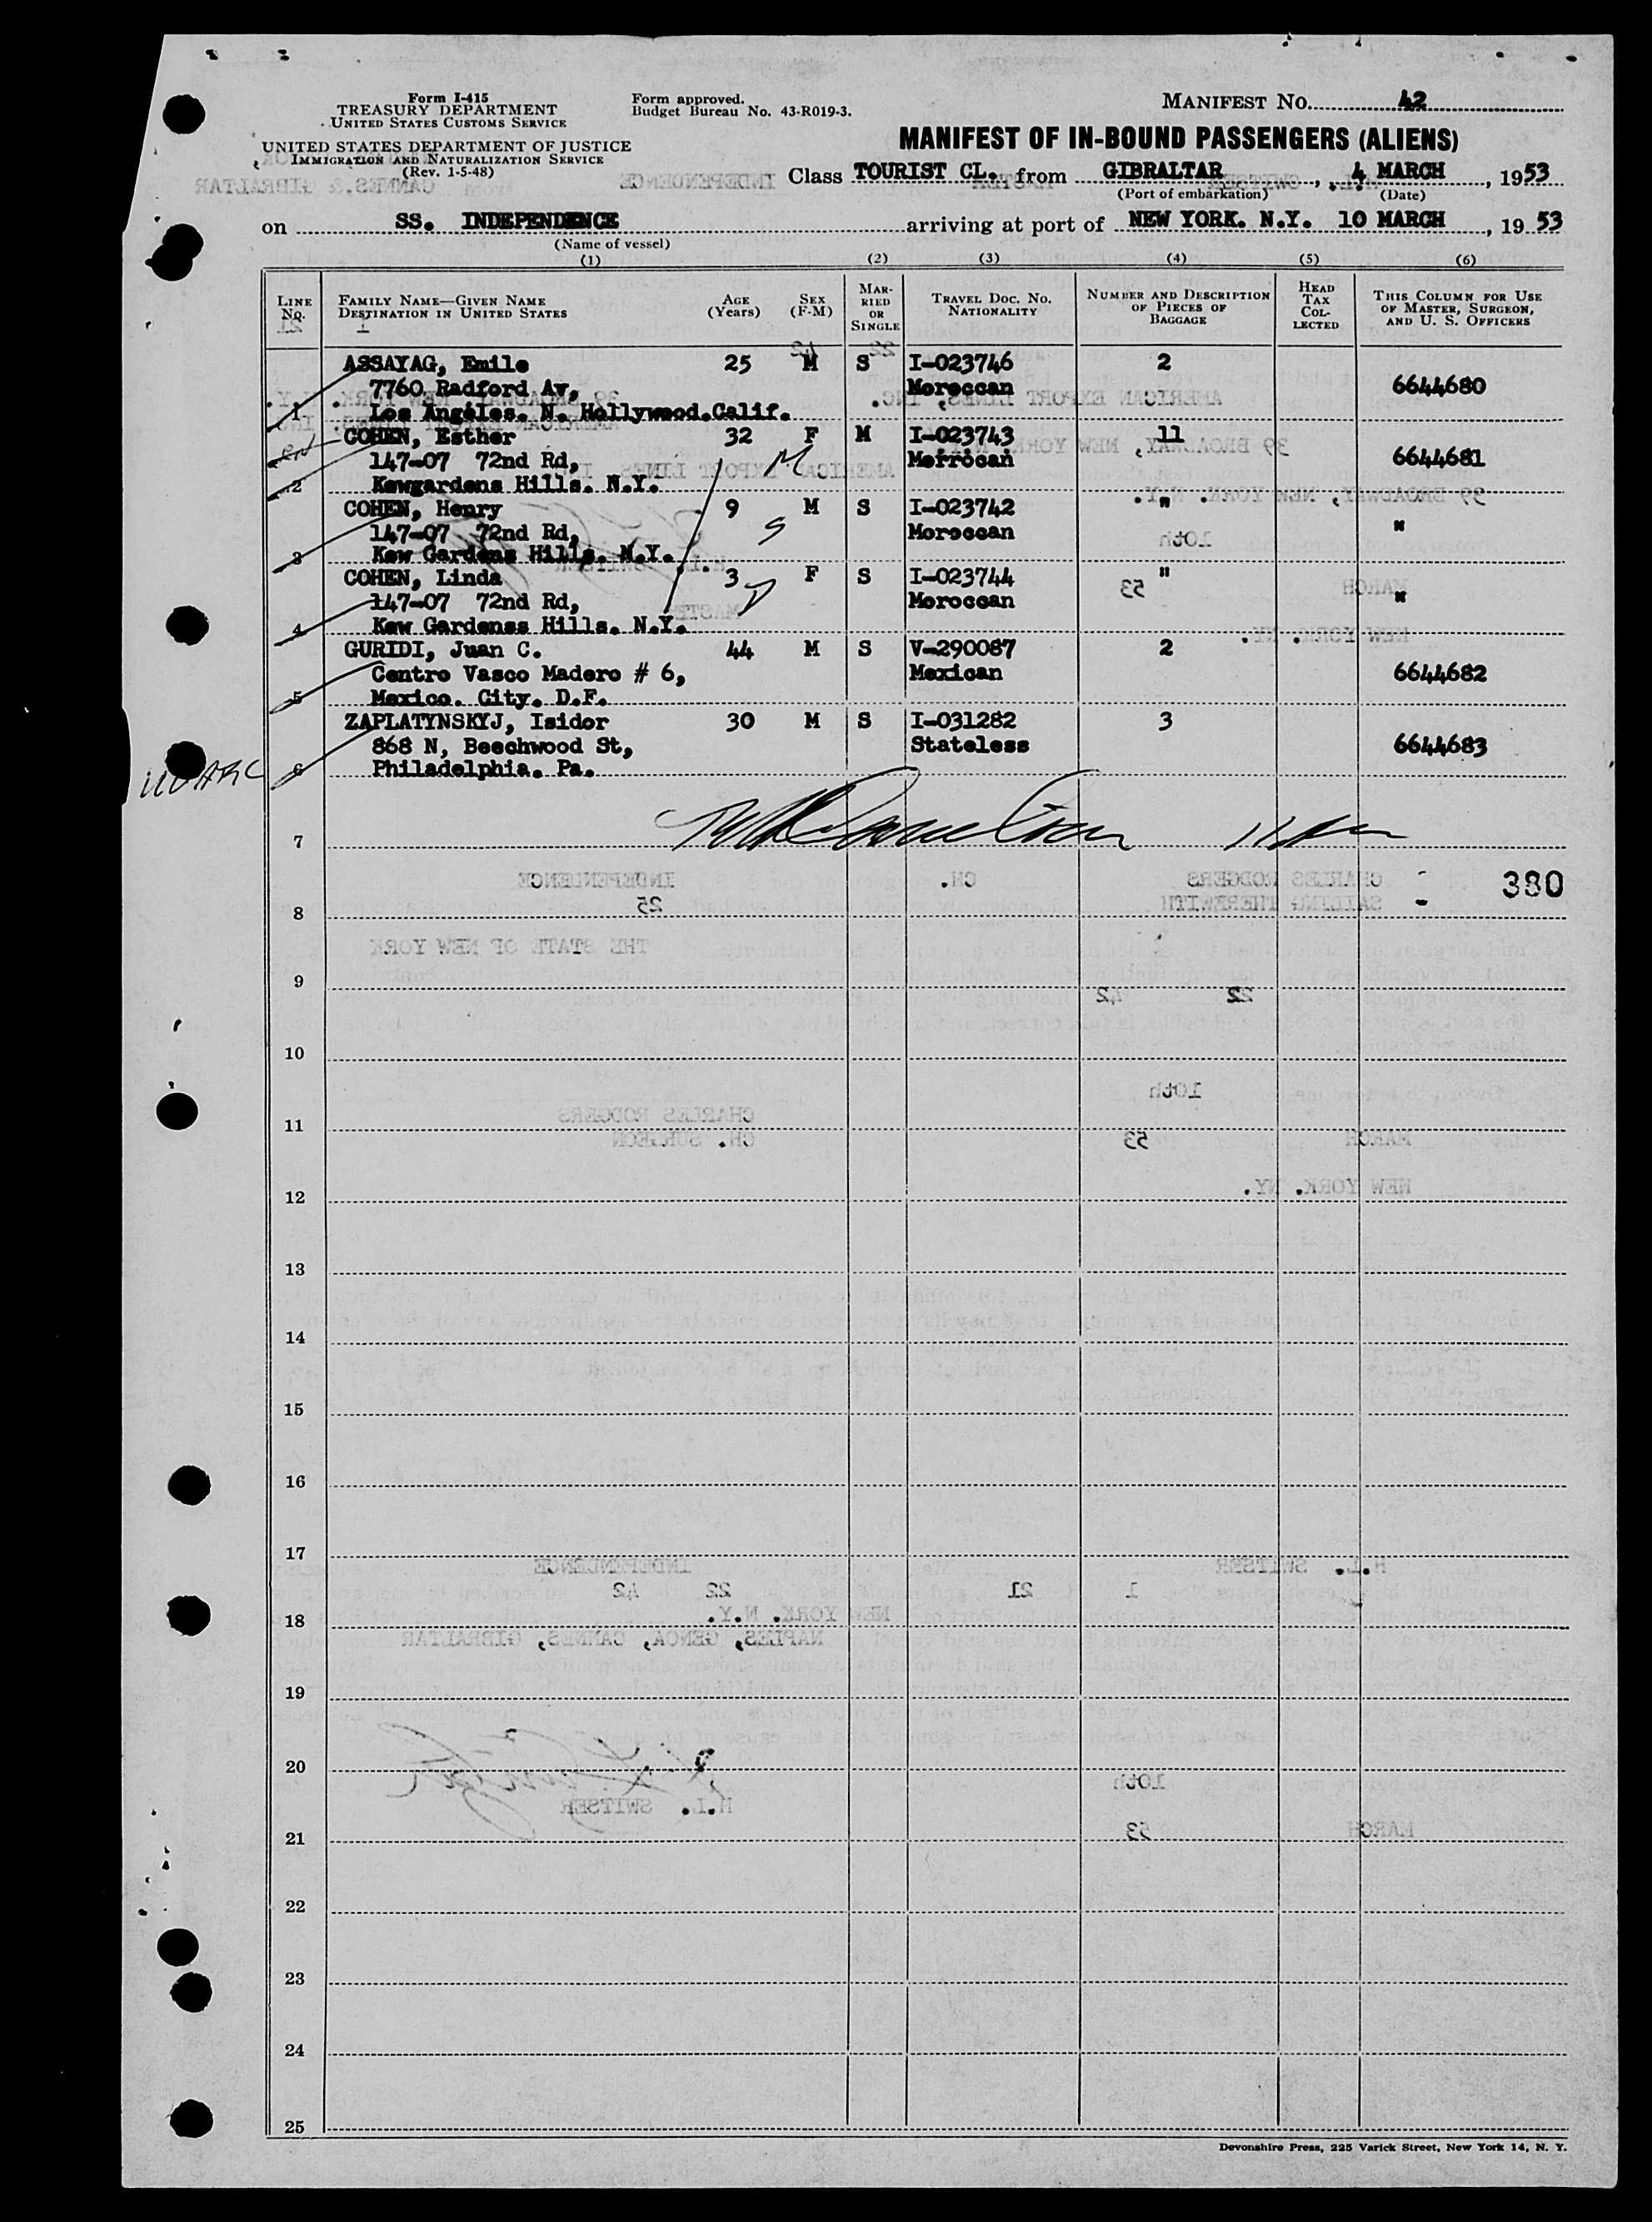 Form I-415
TREASURY DEPARTMENT
UNITED STATES CUSTOMS SERVICE
UNITED STATES DEPARTMENT OF JUSTICE
IMMIGRATION AND NATURALIZATION SERVICE
(Rev. 1-5-48)
Form approved.
Budget Bureau No. 43-R019-3.
MANIFEST NO. 42
MANIFEST OF IN-BOUND PASSENGERS (ALIENS)
Class TOURIST CL. from GIBRALTAR, 4 MARCH, 1953
(Port of embarkation) (Date)
on SS. INDEPENDENCE arriving at port of NEW YORK. N.Y. 10 MARCH, 19 53
(Name of vessel)
(1) (2) (3) (4) (5) (6)
LINE NO. FAMILY NAME—GIVEN NAME DESTINATION IN UNITED STATES AGE (Years) SEX (F-M) MARRIED OR SINGLE TRAVEL DOC. NO. NATIONALITY NUMBER AND DESCRIPTION OF PIECES OF BAGGAGE HEAD TAX COLLECTED THIS COLUMN FOR USE OF MASTER, SURGEON, AND U. S. OFFICERS
ASSAYAG, Emile 25 M S I-023746 2
7760 Radford Av, Moroccan 6644680
1 Los Angeles. N. Hollywood.Calif.
COHEN, Esther 32 F M I-023743 11
147-07 72nd Rd, M Morrocan 6644681
2 Kewgardens Hills. N.Y.
COHEN, Henry 9 M S I-023742 "
147-07 72nd Rd, S Moroccan "
3 Kew Gardens Hills. N.Y.
COHEN, Linda 3 F S I-023744 "
147-07 72nd Rd, D Moroccan "
4 Kew Gardenss Hills. N.Y.
GURIDI, Juan C. 44 M S V-290087 2
Centro Vasco Madero # 6, Mexican 6644682
5 Mexico. City. D.F.
ZAPLATYNSKYJ, Isidor 30 M S I-031282 3
868 N, Beechwood St, Stateless 6644683
6 Philadelphia. Pa.
7
380
8
9
10
11
12
13
14
15
16
17
18
19
20
21
22
23
24
25
Devonshire Press, 225 Varick Street, New York 14, N. Y.